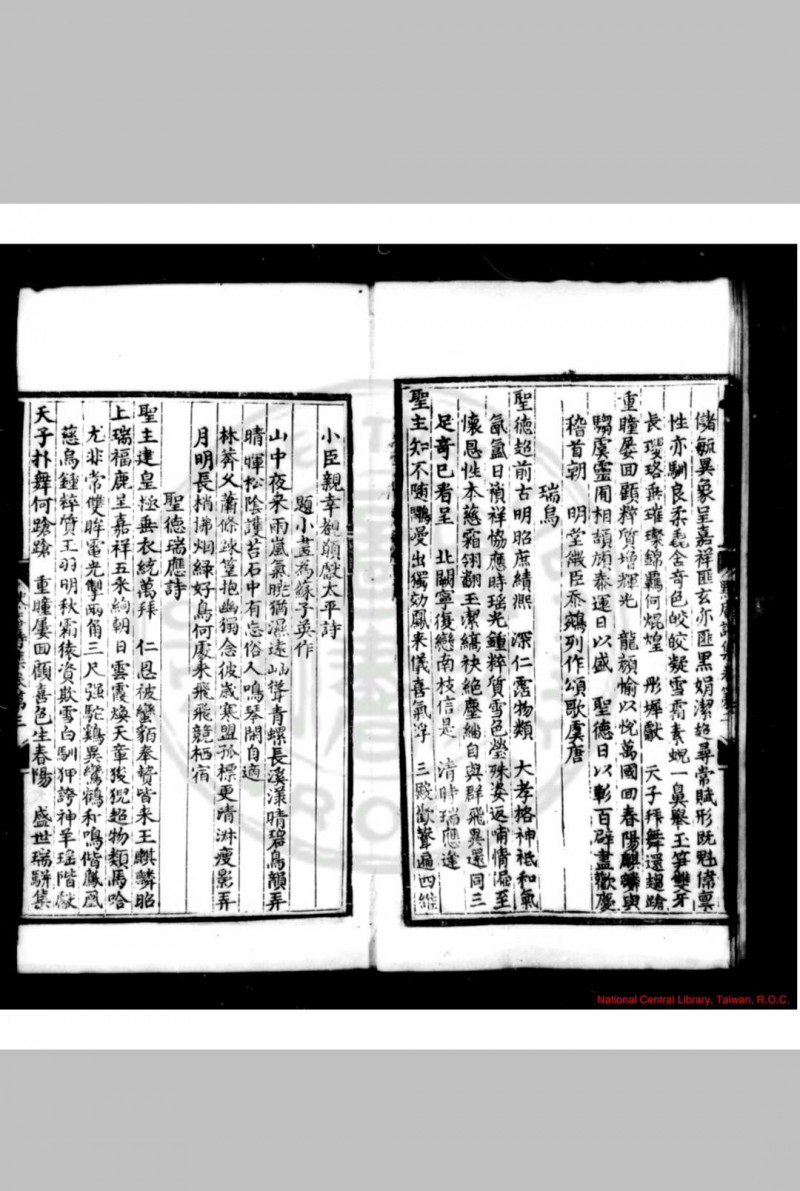 儲毓異象呈嘉祥匪玄亦匪黑娟潔超尋常賦形既魁偉稟
性亦馴良柔毳含奇色皎皎凝雪霜素蜺一鼻擎玉笋雙牙
長瓔珞垂璀璨錦羈何焜煌 彤墀獻 天子拜舞還趨蹌
重瞳屢回顧粹質增輝光 龍顏愉以悅萬國回春陽麒麟與
騶虞靈囿相頡頏泰運日以盛 聖德日以彰百辟盡歡慶
稽首朝 明堂微臣忝鵷列作頌歌虞唐
瑞烏
聖德超前古明昭庶績熙 深仁霑物類 大孝格神祇和氣
氤氳日禎祥恊應時瑤光鍾粹質雪色瑩殊姿返哺情漏至
懷恩性本慈霜翎翻玉潔縞袂絕塵緇自與群飛異還同三
足奇已看呈 北闕寧復戀南枝信是 清時瑞應逢
聖主知不随鸚晏出獨効鳳来儀喜氣浮 三殿歡聲遍四
小臣親幸覩願獻太平詩
題小畫為蘇子英作
山中夜来雨嵐氣曉猶濕遠岫聳青螺長溪漾晴碧鳥韻弄
晴暉松陰護苔石中有忘俗人鳴琴閒自適
林薺父蕭條踈篁抱幽獨念彼歲寒盟孤標更清淋瘦影弄
月明長梢拂烟綠好鳥何處来飛飛競栖宿
聖德瑞應詩
聖主建皇極垂衣統萬拜 仁恩被蠻貊奉贄皆来王麒麟昭
上瑞福鹿呈嘉祥五采絢朝日雲霞煥天章狻猊超物類馬哈
尤非常雙眸電光掣兩角三尺强駝鷄異鸞鶴和鳴偕鳳凰
慈烏鍾粹質玉羽明秋霜猿資欺雪白馴狎誇神羊瑤階獻
天子扑舞何蹌蹌 重瞳屢回顧喜色生春陽 盛世瑞駢集
National Central Library, Taiwan, R.O.C.